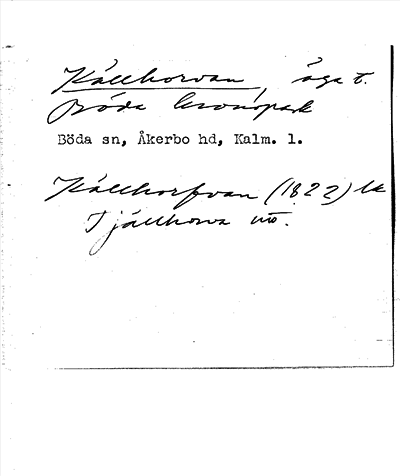 Källhorvan, äga t.
Böda kronopark
Böda sn, Åkerbo hd, Kalm. l.
Källhorfvan (1822) lk
Tjällhorva uö.